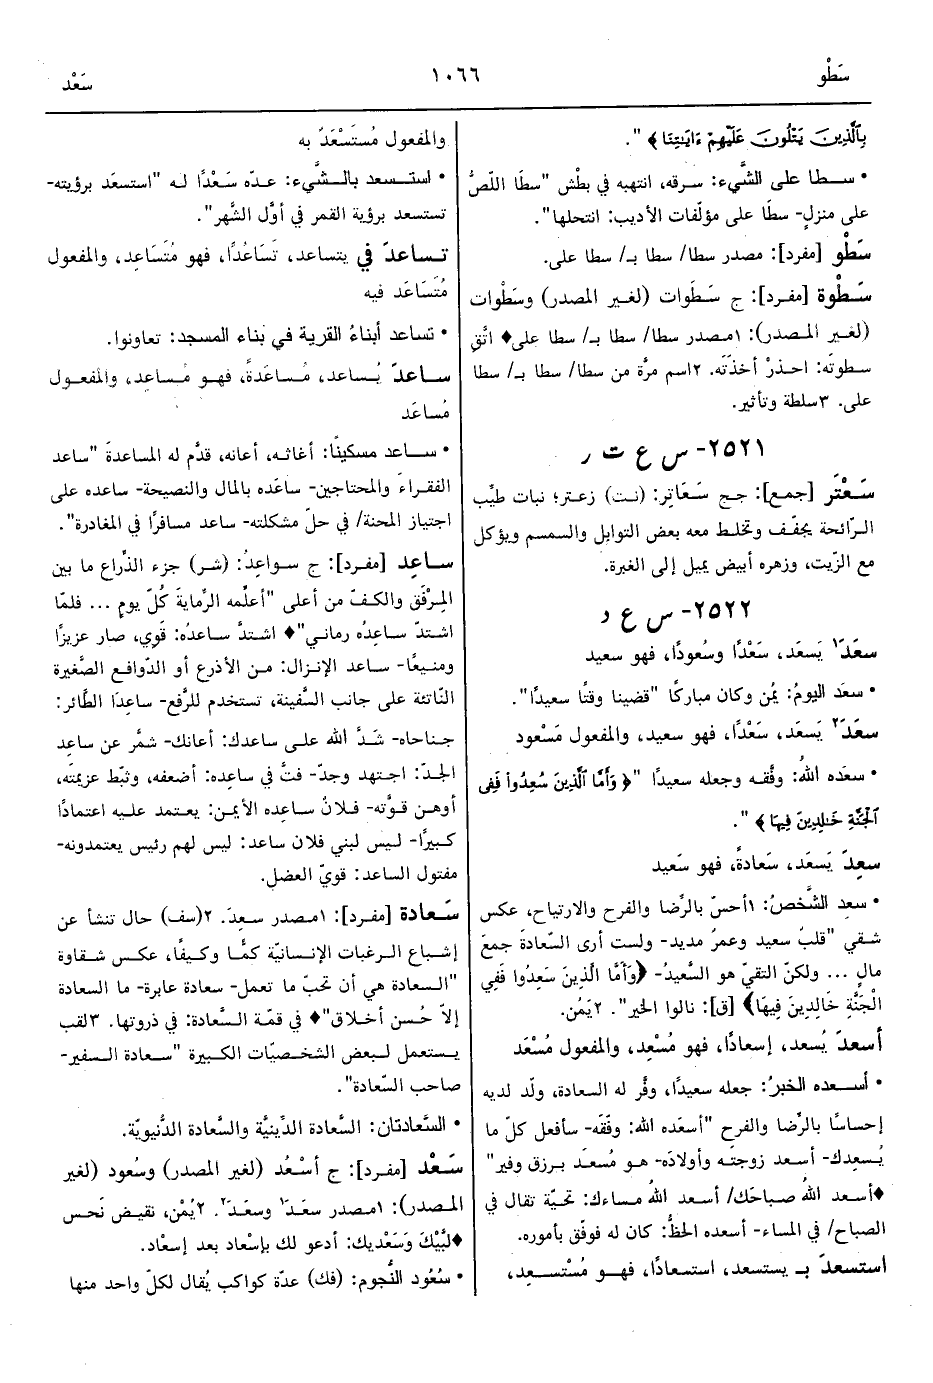 سَطْو
١٠٦٦
سَعْد
بِٱلَّذِينَ يَتْلُونَ عَلَيْهِمْ ءَايَٰتِنَا ﴾ ".
• سـطا على الشَّيء: سرقه، انتهبه في بطْش "سطَا اللّصُّ
على منزلٍ- سطَا على مؤلّفات الأديب: انتحلها".
سَطْو [مفرد]: مصدر سطا/ سطا بـ/ سطا على.
سَـطْوة [مفـرد]: ج سَـطَوات (لغـير المصدر) وسَطْوات
(لغـير المـصدر): ١مـصدر سطا/ سطا بـ/ سطا على♦ اتَّقِ
سـطوتَه: احـذرْ أخذَتَه. ٢اسم مرَّة من سطا/ سطا بـ/ سطا
على. ٣سلطة وتأثير.
٢٥٢١- س ع ت ر
سَـعْتَر [جمـع]: جـج سَـعَاتِر: (نـت) زعـتر؛ نبات طيِّب
الرّائحة يجفّـف وتخلـط معه بعض التوابل والسمسم ويؤكل
مع الزّيت، وزهره أبيض يميل إلى الغبرة.
٢٥٢٢- س ع د
سعَدَ¹ يَسعَد، سَعْدًا وسُعودًا، فهو سعيد
• سعَد اليومُ: يمُن وكان مباركًا "قضينا وقتًا سعيدًا".
سعَدَ² يَسعَد، سَعْدًا، فهو سعيد، والمفعول مَسْعود
• سعَده اللهُ: وفّقه وجعله سعيدًا "﴿ وَأَمَّا ٱلَّذِينَ سُعِدُوا۟ فَفِى
ٱلْجَنَّةِ خَٰلِدِينَ فِيهَا ﴾ ".
سعِدَ يَسعَد، سَعادةً، فهو سَعيد
• سعِد الشَّخصُ: ١أحسّ بالرِّضا والفرح والارتياح، عكس
شـقي "قلبٌ سعيد وعمرٌ مديد- ولست أرى السّعادةَ جمعَ
مالٍ ... ولكنّ التقيّ هو السَّعيدُ- ﴿وَأَمَّا الَّذِينَ سَعِدُوا فَفِي
الْجَنَّةِ خَالِدِينَ فِيهَا﴾ [ق]: نالوا الخير". ٢يَمُن.
أسعدَ يُسعد، إسعادًا، فهو مُسْعِد، والمفعول مُسْعَد
• أسـعده الخبرُ: جعله سعيدًا، وفَّر له السعادة، ولّد لديه
إحساسًا بالرِّضا والفرح "أسعَده الله: وفّقَه- سأفعل كلّ ما
يُـسعِدك- أسـعد زوجتَـه وأولادَه- هـو مُسعَـد بـرزق وفير"
♦أسـعد اللهُ صـباحَك/ أسـعد اللهُ مساءك: تحيّة تقال في
الصباح/ في المساء- أسعده الحظُّ: كان له فوفّق بأموره.
استسعدَ بـ يستسعد، استـسعادًا، فهـو مُسْتـسـعِد،
والمفعول مُستَسْعَدٌ به
• استـسعد بالـشَّيء: عدّه سَـعْدًا لـه "استسعَد برؤيته-
تستسعد برؤية القمر في أوَّل الشَّهر".
تـساعدَ في يتساعد، تَسَاعُدًا، فهو مُتَسَاعِد، والمفعول
مُتَسَاعَد فيه
• تساعد أبناءُ القرية في بناء المسجد: تعاونوا.
سـاعدَ يُـساعد، مُـساعَدةً، فهـو مُساعِد، والمفعـول
مُساعَد
• سـاعد مسكينًا: أغاثـه، أعانه، قدَّم له المساعدةَ "ساعد
الفقراءَ والمحتاجين- ساعَده بالمال والنصيحة- ساعده على
اجتياز المحنة/ في حلّ مشكلته- ساعد مسافرًا في المغادرة".
ساعِد [مفـرد]: ج سـواعِدُ: (شر) جزء الذِّراع ما بين
المِرْفَق والكـفّ مـن أعلى "أعلّمه الرّمايةَ كُلَّ يومٍ ... فلمّا
اشـتدّ سـاعِدُه رماني"♦ اشـتدَّ سـاعدُه: قَوِي، صار عزيزًا
ومنـيعًا- سـاعد الإنـزال: مـن الأذرع أو الدّوافـع الصَّغيرة
النّاتئة على جانب السَّفينة، تستخدم للرَّفع- ساعِدَا الطَّائر:
جـناحاه- شَـدَّ اللهُ علـى سـاعدك: أعانك- شمَّر عن ساعِدِ
الجـدّ: اجـتهد وجـدّ- فـتَّ في ساعِده: أضعفه، وثبّط عزيمتَه،
أوهـن قـوّته- فـلانٌ سـاعِده الأيمـن: يعـتمد علـيه اعتمادًا
كـبيرًا- لـيس لبني فلان ساعد: ليس لهم رئيس يعتمدونه-
مفتول الساعد: قويّ العضل.
سَعادة [مفـرد]: ١مـصدر سعِدَ. ٢(سف) حال تنشأ عن
إشـباع الـرغبات الإنـسانيّة كمًّـا وكـيفًا، عكـس شـقاوة
"الـسعادة هي أن تحبّ ما تعمل- سعادة عابرة- ما السعادة
إلاّ حُسن أخـلاق"♦ في قمّـة السَّعادة: في ذروتها. ٣لقب
يـستعمل لـبعض الشخـصيّات الكـبيرة "سـعادة الـسفير-
صاحب السَّعادة".
• السَّعادتان: السَّعادة الدِّينيَّة والسَّعادة الدُّنيويّة.
سَـعْد [مفـرد]: ج أسْـعُد (لغـير المـصدر) وسُعود (لغـير
المـصدر): ١مـصدر سعَدَ¹ وسعَدَ². ٢يُمْن، نقيض نَحس
♦لَبَّيْكَ وَسَعْديك: أدعو لك بإسْعاد بعد إسْعاد.
• سُعُود النُّجوم: (فك) عدّة كواكب يُقال لكلّ واحد منها